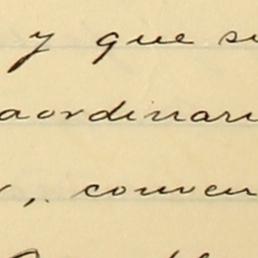 y que si
aordinari
, conven